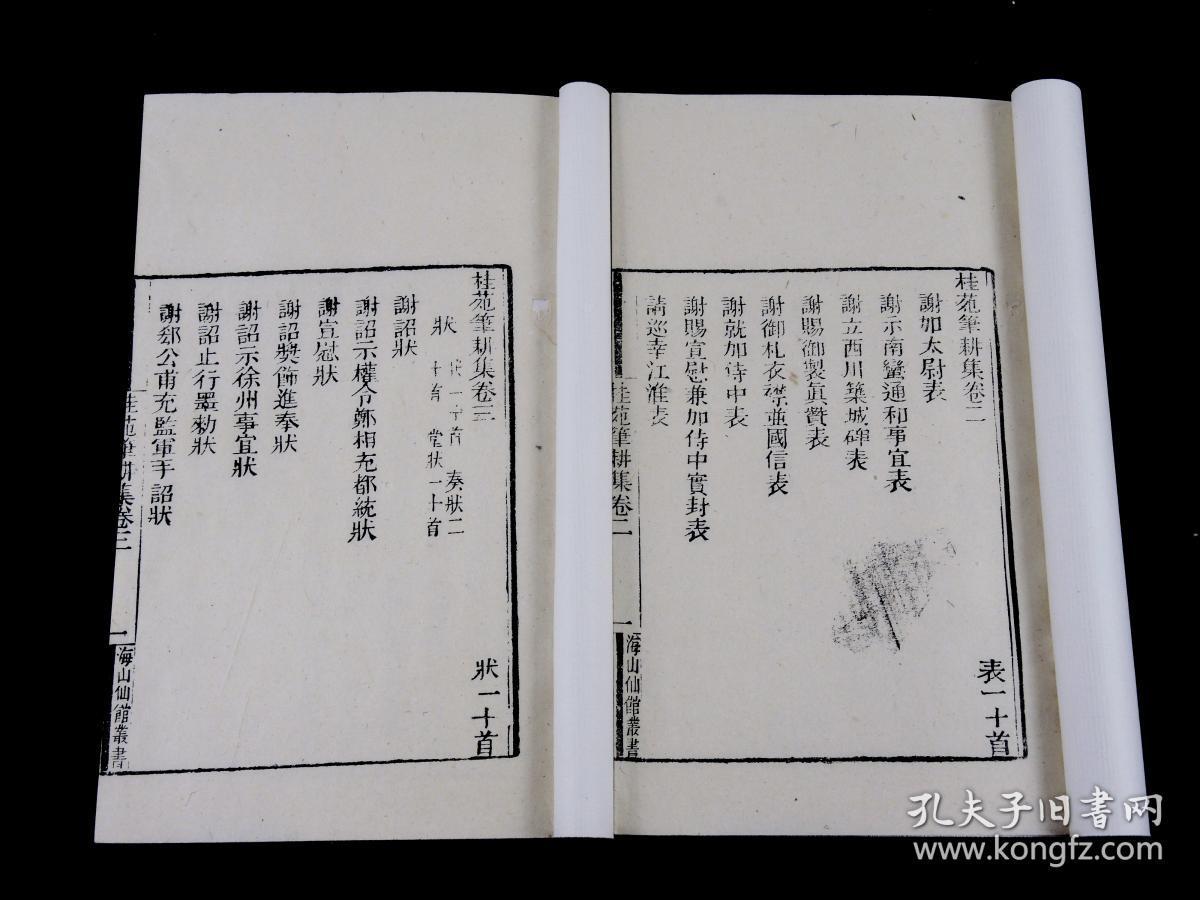 桂苑筆耕集卷二
表一十首
謝加太尉表
謝示南蠻通和事宜表
謝立西川築城碑表
謝賜御製真贊表
謝御札衣襟並國信表
謝就加侍中表
謝賜宣慰兼加侍中實封表
請巡幸江淮表
桂苑筆耕集卷二
一
海山仙館叢書
桂苑筆耕集卷三
狀一十首
狀
一十首 奏狀二
十首 堂狀一十首
謝詔狀
謝詔示權令鄭相充都統狀
謝宣慰狀
謝詔獎飾進奉狀
謝詔示徐州事宜狀
謝詔止行墨勅狀
謝郄公甫充監軍手詔狀
桂苑筆耕集卷三
一
海山仙館叢書
孔夫子旧书网
www.kongfz.com